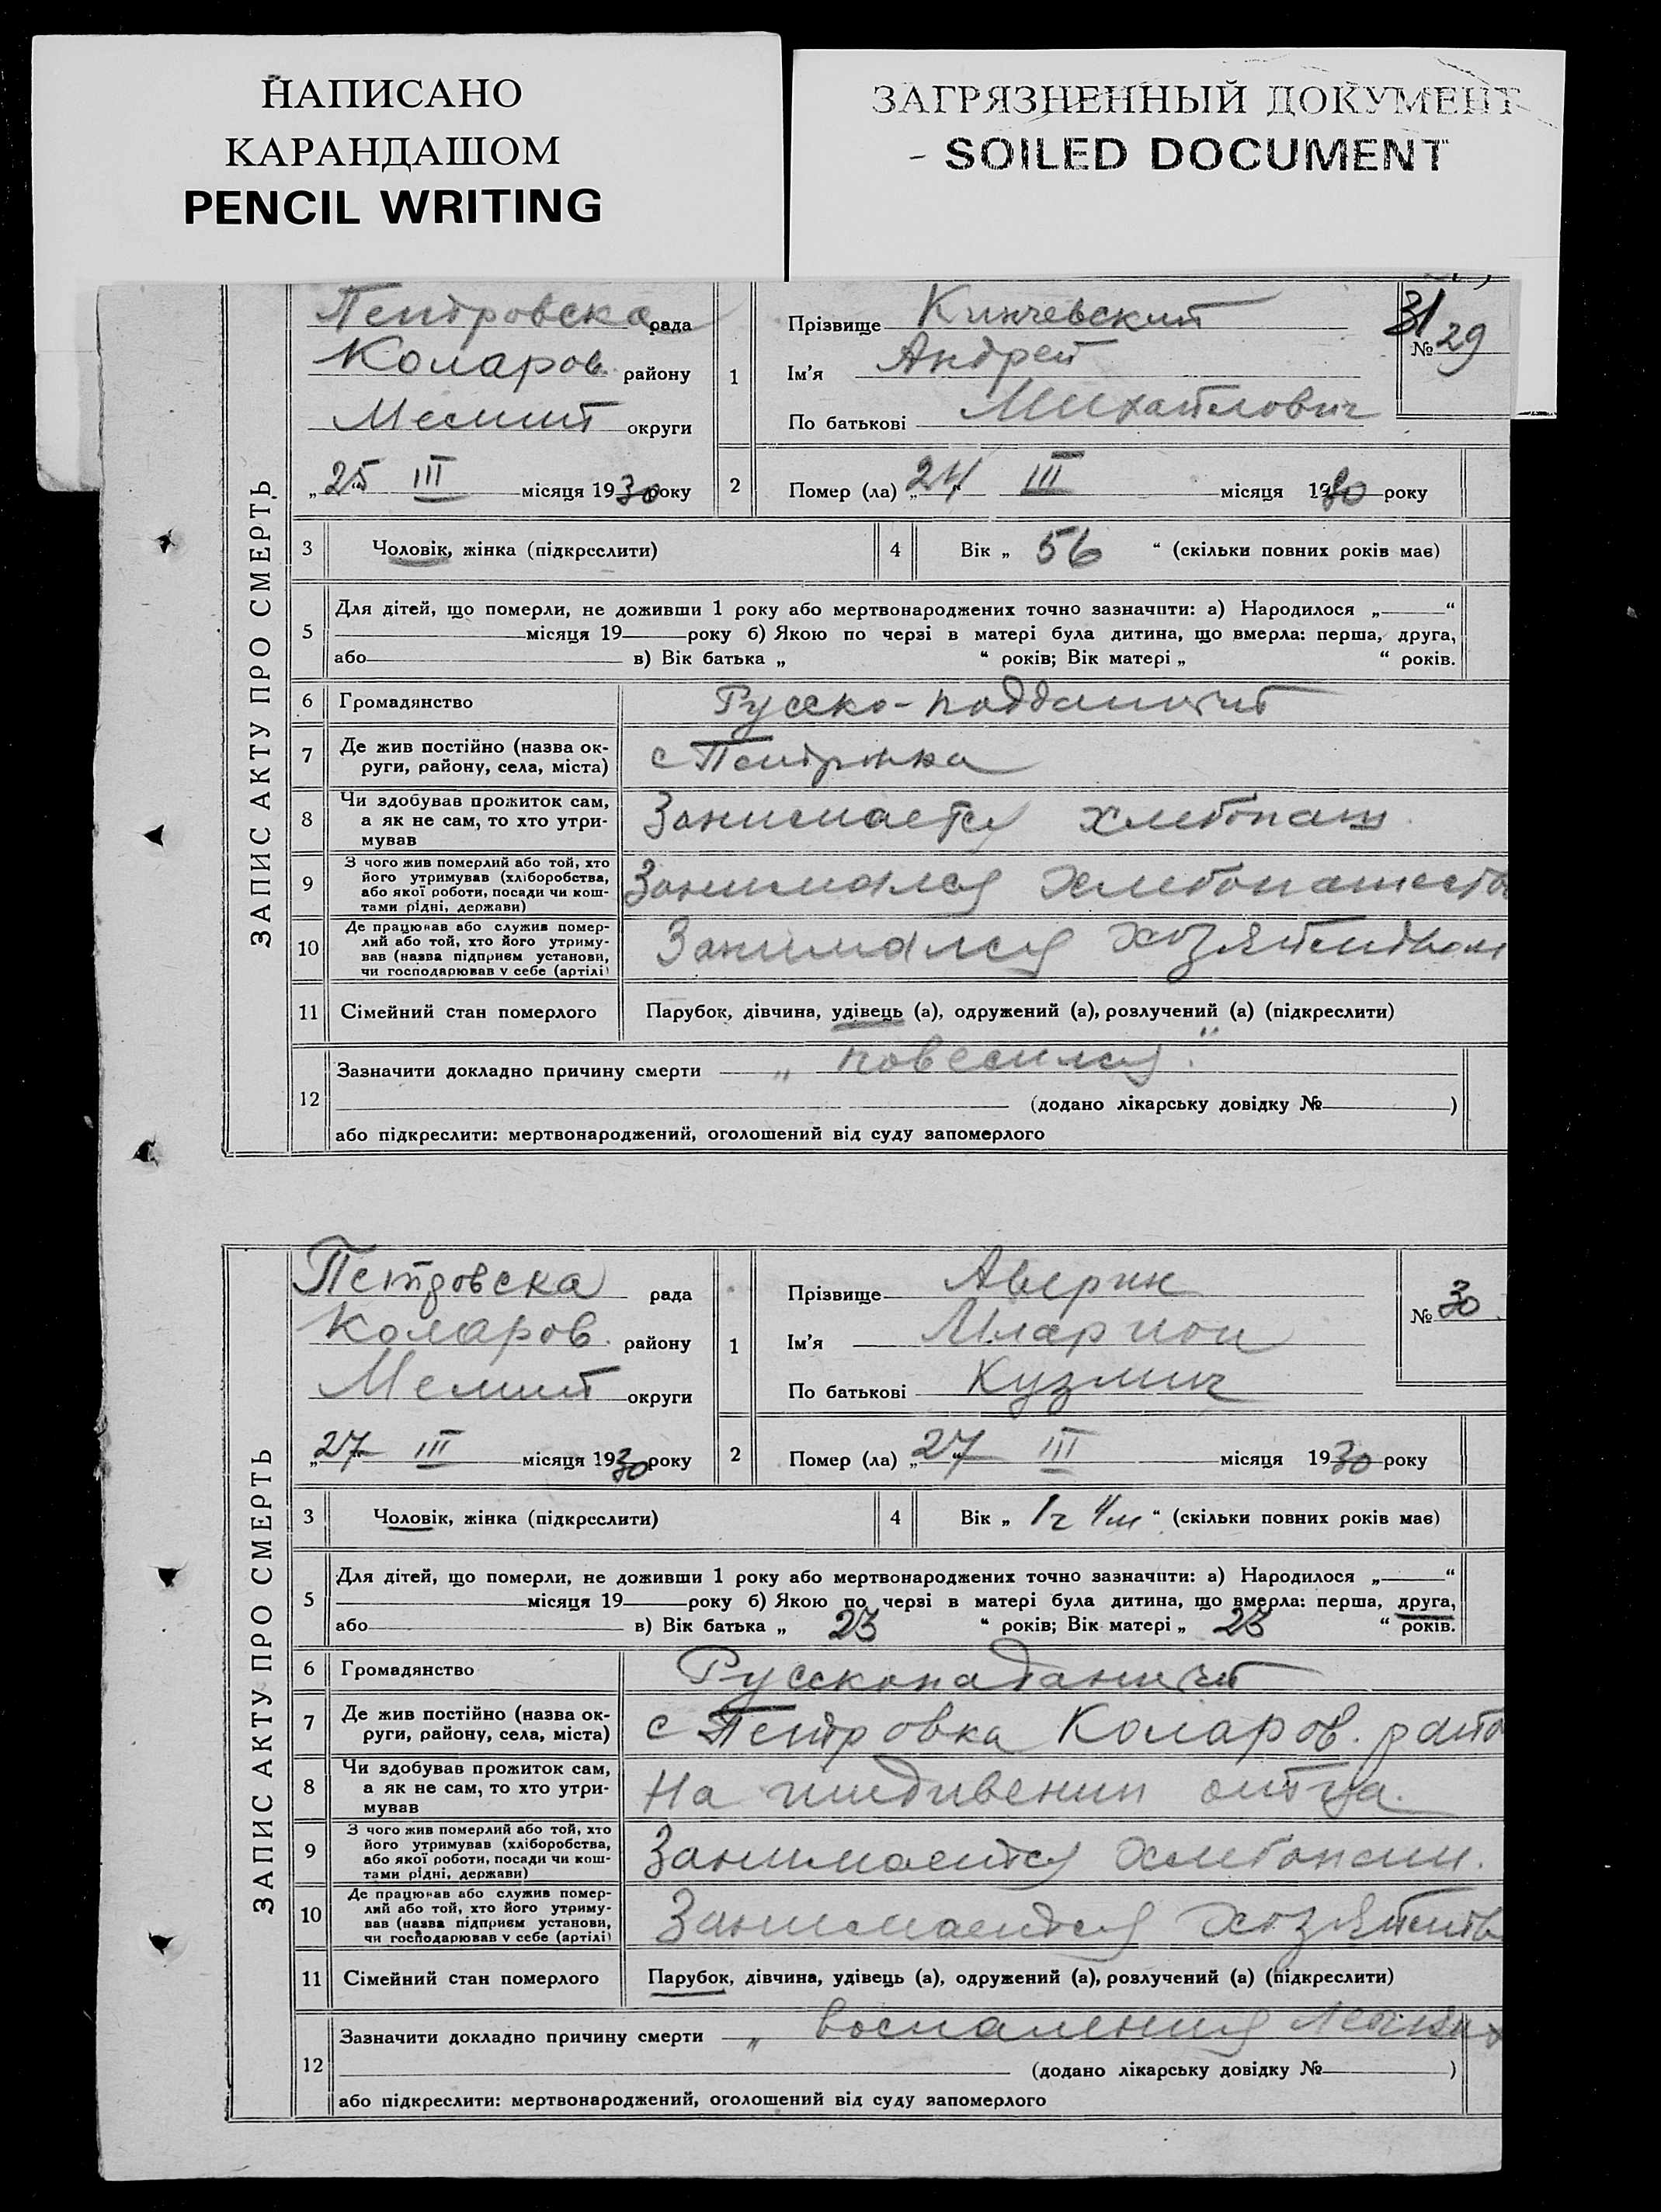 НАПИСАНО
КАРАНДАШОМ
PENCIL WRITING
ЗАГРЯЗНЕННЫЙ ДОКУМЕНТ
- SOILED DOCUMENT
ЗАПИС АКТУ ПРО СМЕРТЬ
Петровска рада
Коларов. району
Мелит округи
„25 III місяця 1930 року
1
Прізвище Кинчевский
Ім’я Андрей
По батькові Михайлович
31
№ 29
2 Помер (ла) „24“ III місяця 1930 року
3 Чоловік, жінка (підкреслити)
4 Вік „ 56 “ (скільки повних років має)
5 Для дітей, що померли, не доживши 1 року або мертвонароджених точно зазначити: а) Народилося „ “
місяця 19 року б) Якою по черзі в матері була дитина, що вмерла: перша, друга,
або в) Вік батька „ “ років; Вік матері „ “ років.
6 Громадянство Русско-подданый
7 Де жив постійно (назва ок-
руги, району, села, міста) с Петровка
8 Чи здобував прожиток сам,
а як не сам, то хто утри-
мував Занимается хлебопаш.
9 З чого жив померлий або той, хто
його утримував (хліборобства,
або якої роботи, посади чи кош-
тами рідні, держави) Занимался хлебопашеств
10 Де працював або служив помер-
лий або той, хто його утриму-
вав (назва підприєм установи,
чи господарював у себе (артілі) Занимался хозяйством
11 Сімейний стан померлого Парубок, дівчина, удівець (а), одружений (а), розлучений (а) (підкреслити)
12 Зазначити докладно причину смерти „ повесился “
(додано лікарську довідку № )
або підкреслити: мертвонароджений, оголошений від суду запомерлого
ЗАПИС АКТУ ПРО СМЕРТЬ
Петровска рада
Коларов. району
Мелит округи
„27 III місяця 1930 року
1
Прізвище Аверин
Ім’я Иларион
По батькові Кузмич
№ 30
2 Помер (ла) „27“ III місяця 1930 року
3 Чоловік, жінка (підкреслити)
4 Вік „ 1г 4м “ (скільки повних років має)
5 Для дітей, що померли, не доживши 1 року або мертвонароджених точно зазначити: а) Народилося „ “
місяця 19 року б) Якою по черзі в матері була дитина, що вмерла: перша, друга,
або в) Вік батька „ 23 “ років; Вік матері „ 23 “ років.
6 Громадянство
7 Де жив постійно (назва ок-
руги, району, села, міста) с Петровка Коларов. райо
8 Чи здобував прожиток сам,
а як не сам, то хто утри-
мував На иждивении отца.
9 З чого жив померлий або той, хто
його утримував (хліборобства,
або якої роботи, посади чи кош-
тами рідні, держави) Занимается хлебопаш.
10 Де працював або служив помер-
лий або той, хто його утриму-
вав (назва підприєм установи,
чи господарював у себе (артілі) Занимается хозяйств
11 Сімейний стан померлого Парубок, дівчина, удівець (а), одружений (а), розлучений (а) (підкреслити)
12 Зазначити докладно причину смерти „ воспаления легких
(додано лікарську довідку № )
або підкреслити: мертвонароджений, оголошений від суду запомерлого